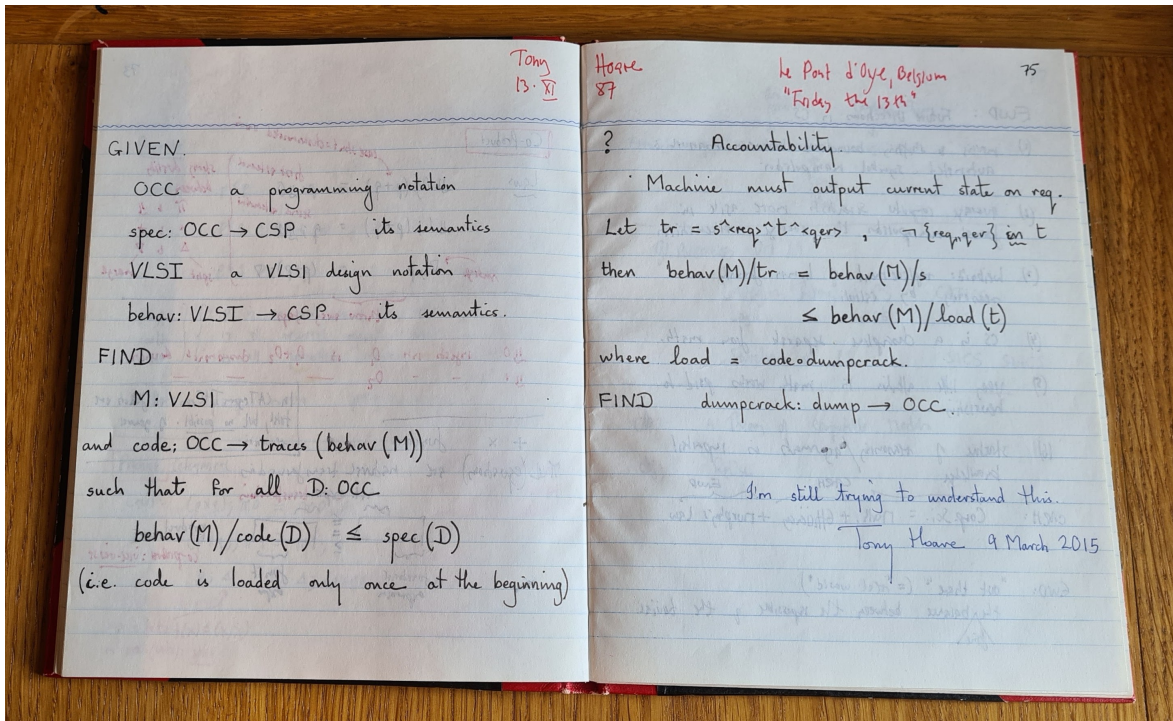 Tony
13. XI
GIVEN.
OCC a programming notation
spec: OCC → CSP its semantics
VLSI a VLSI design notation
behav: VLSI → CSP its semantics.
FIND
M: VLSI
and code: OCC → traces (behav(M))
such that for all D: OCC
behav(M)/code(D) ≤ spec(D)
(i.e. code is loaded only once at the beginning)
Hoare
87
Le Pont d'Oye, Belgium
"Friday the 13th"
75
? Accountability
Machine must output current state on req.
Let tr = s^<req>^t^<qer> , ¬{req,qer} in t
then behav(M)/tr = behav(M)/s
≤ behav(M)/load(t)
where load = code∘dumpcrack.
FIND dumpcrack: dump → OCC.
I'm still trying to understand this.
Tony Hoare 9 March 2015